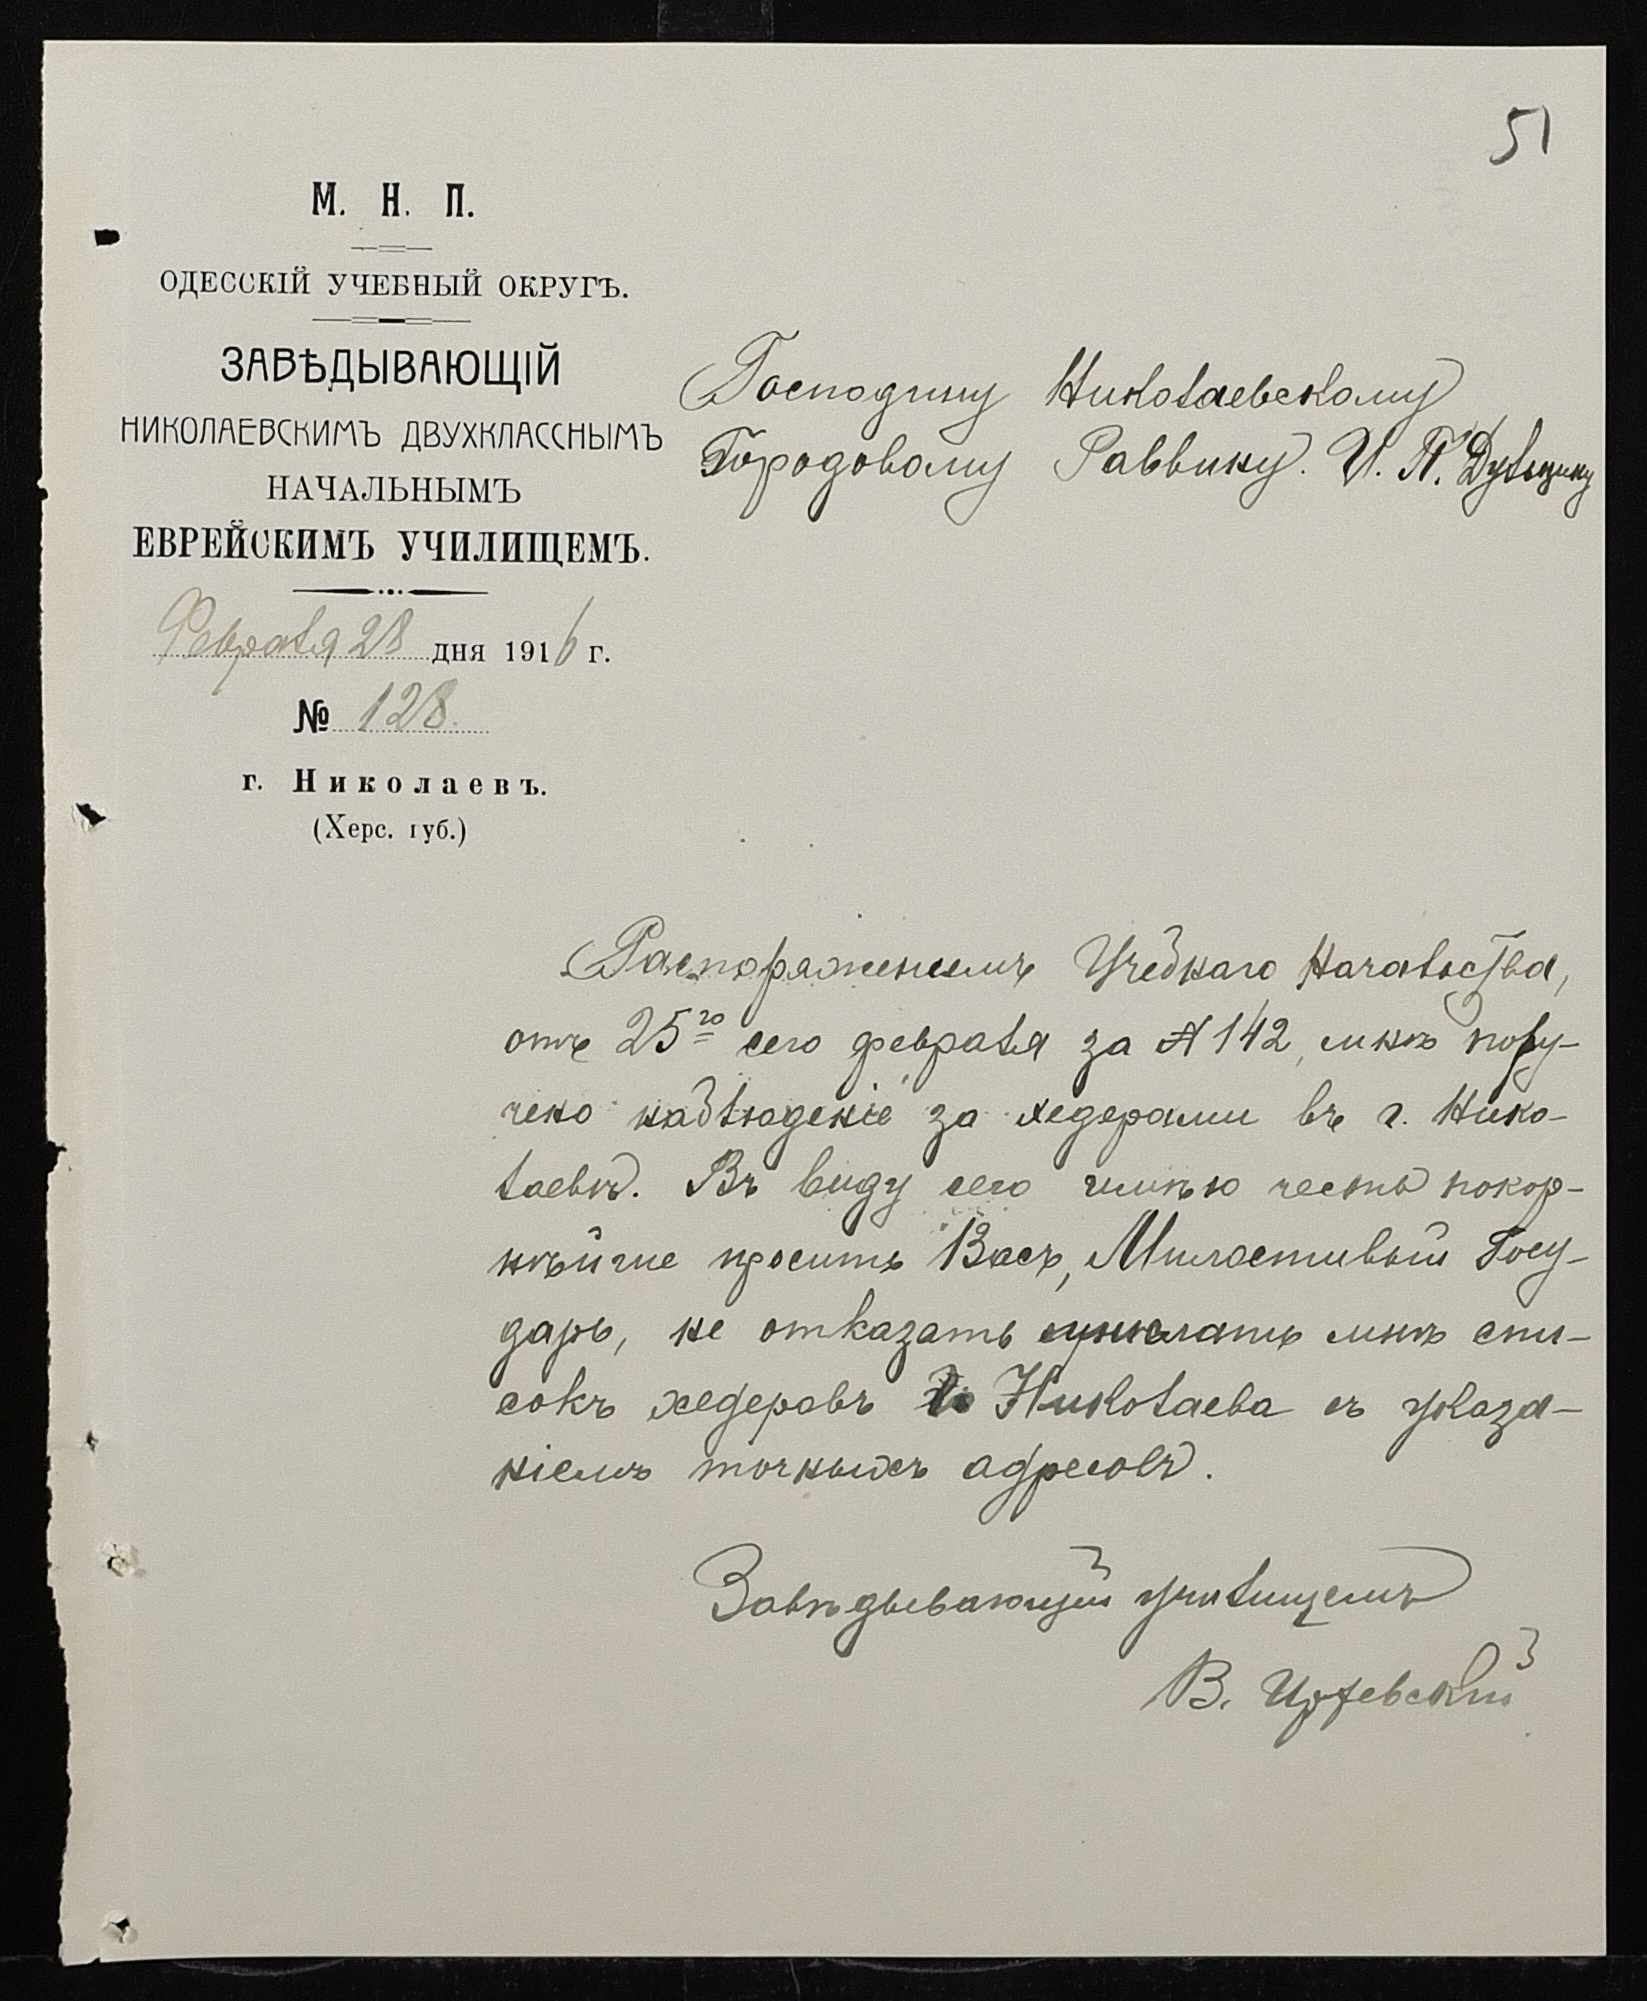 51
М. Н. П.
ОДЕССКІЙ УЧЕБНЫЙ ОКРУГЪ.
ЗАВѢДЫВАЮЩІЙ
НИКОЛАЕВСКИМЪ ДВУХКЛАССНЫМЪ
НАЧАЛЬНЫМЪ
ЕВРЕЙСКИМЪ УЧИЛИЩЕМЪ.
Февраля 28 дня 1916 г.
№ 128.
г. Николаевъ.
(Херс. губ.)
Господину Николаевскому
Городовому Раввину. И. П.
Распоряженіемъ Учебнаго Начальства,
отъ 25го сего февраля за № 142, мнѣ пору-
чено наблюденіе за хедерами въ г. Нико-
лаевѣ. Въ виду сего имѣю честь покор-
нѣйше просить Васъ, Милостивый Госу-
дарь, не отказать мнѣ спи-
сокъ хедеровъ Николаева съ указа-
ніемъ точныхъ адресовъ.
Завѣдывающій училищемъ
В.